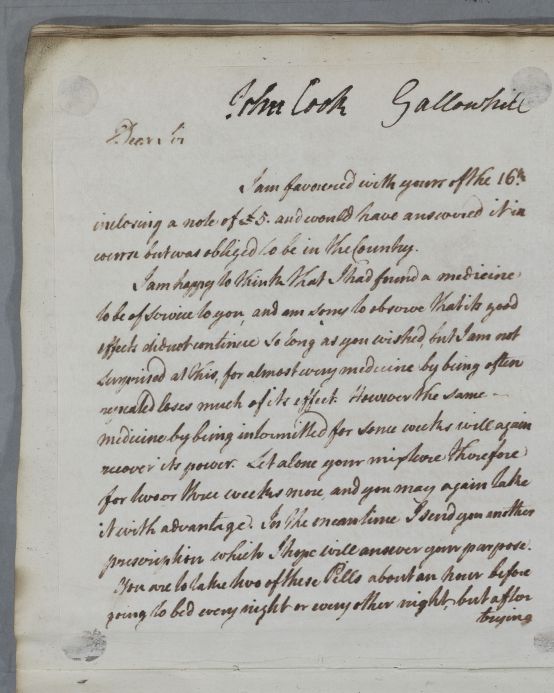 John Cook Gallowhill
Dear Sir
I am favoured with yours of the 16th
inclosing a note of £5. and would have answered it in
course but was obliged to be in the Country.
I am happy to think that I had found a medicine
to be of service to you, and am sorry to observe that its good
effects did not continue so long as you wished but I am not
surprised at this, for almost every medicine by being often
repeated loses much of its effect. However the same
medicine by being intermitted for some weeks will again
recover its power. Let alone your mixture therefore
for two or three weeks more, and you may again take
it with advantage. In the meantime I send you another
prescription which I hope will answer your purpose.
You are to take two of these Pills about an hour before
going to bed every night or every other night, but after
trying